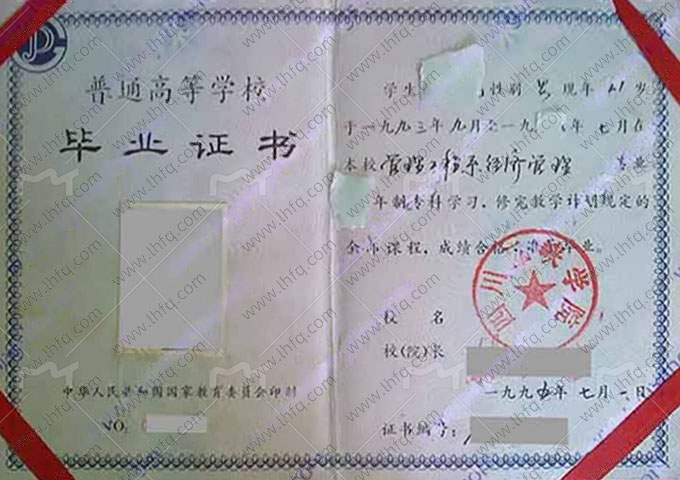 普通高等学校
毕业证书
中华人民共和国国家教育委员会印制
NO:
学生 性别 男 现年 21 岁
于一九九三年九月至一九 年七月在
本校管理工程系经济管理 专业
年制专科学习，修完教学计划规定的
全部课程，成绩合格，准 毕业。
四川 学院
校 名
校(院)长
一九九 年七月一日
证书编号:
www.lhfq.com